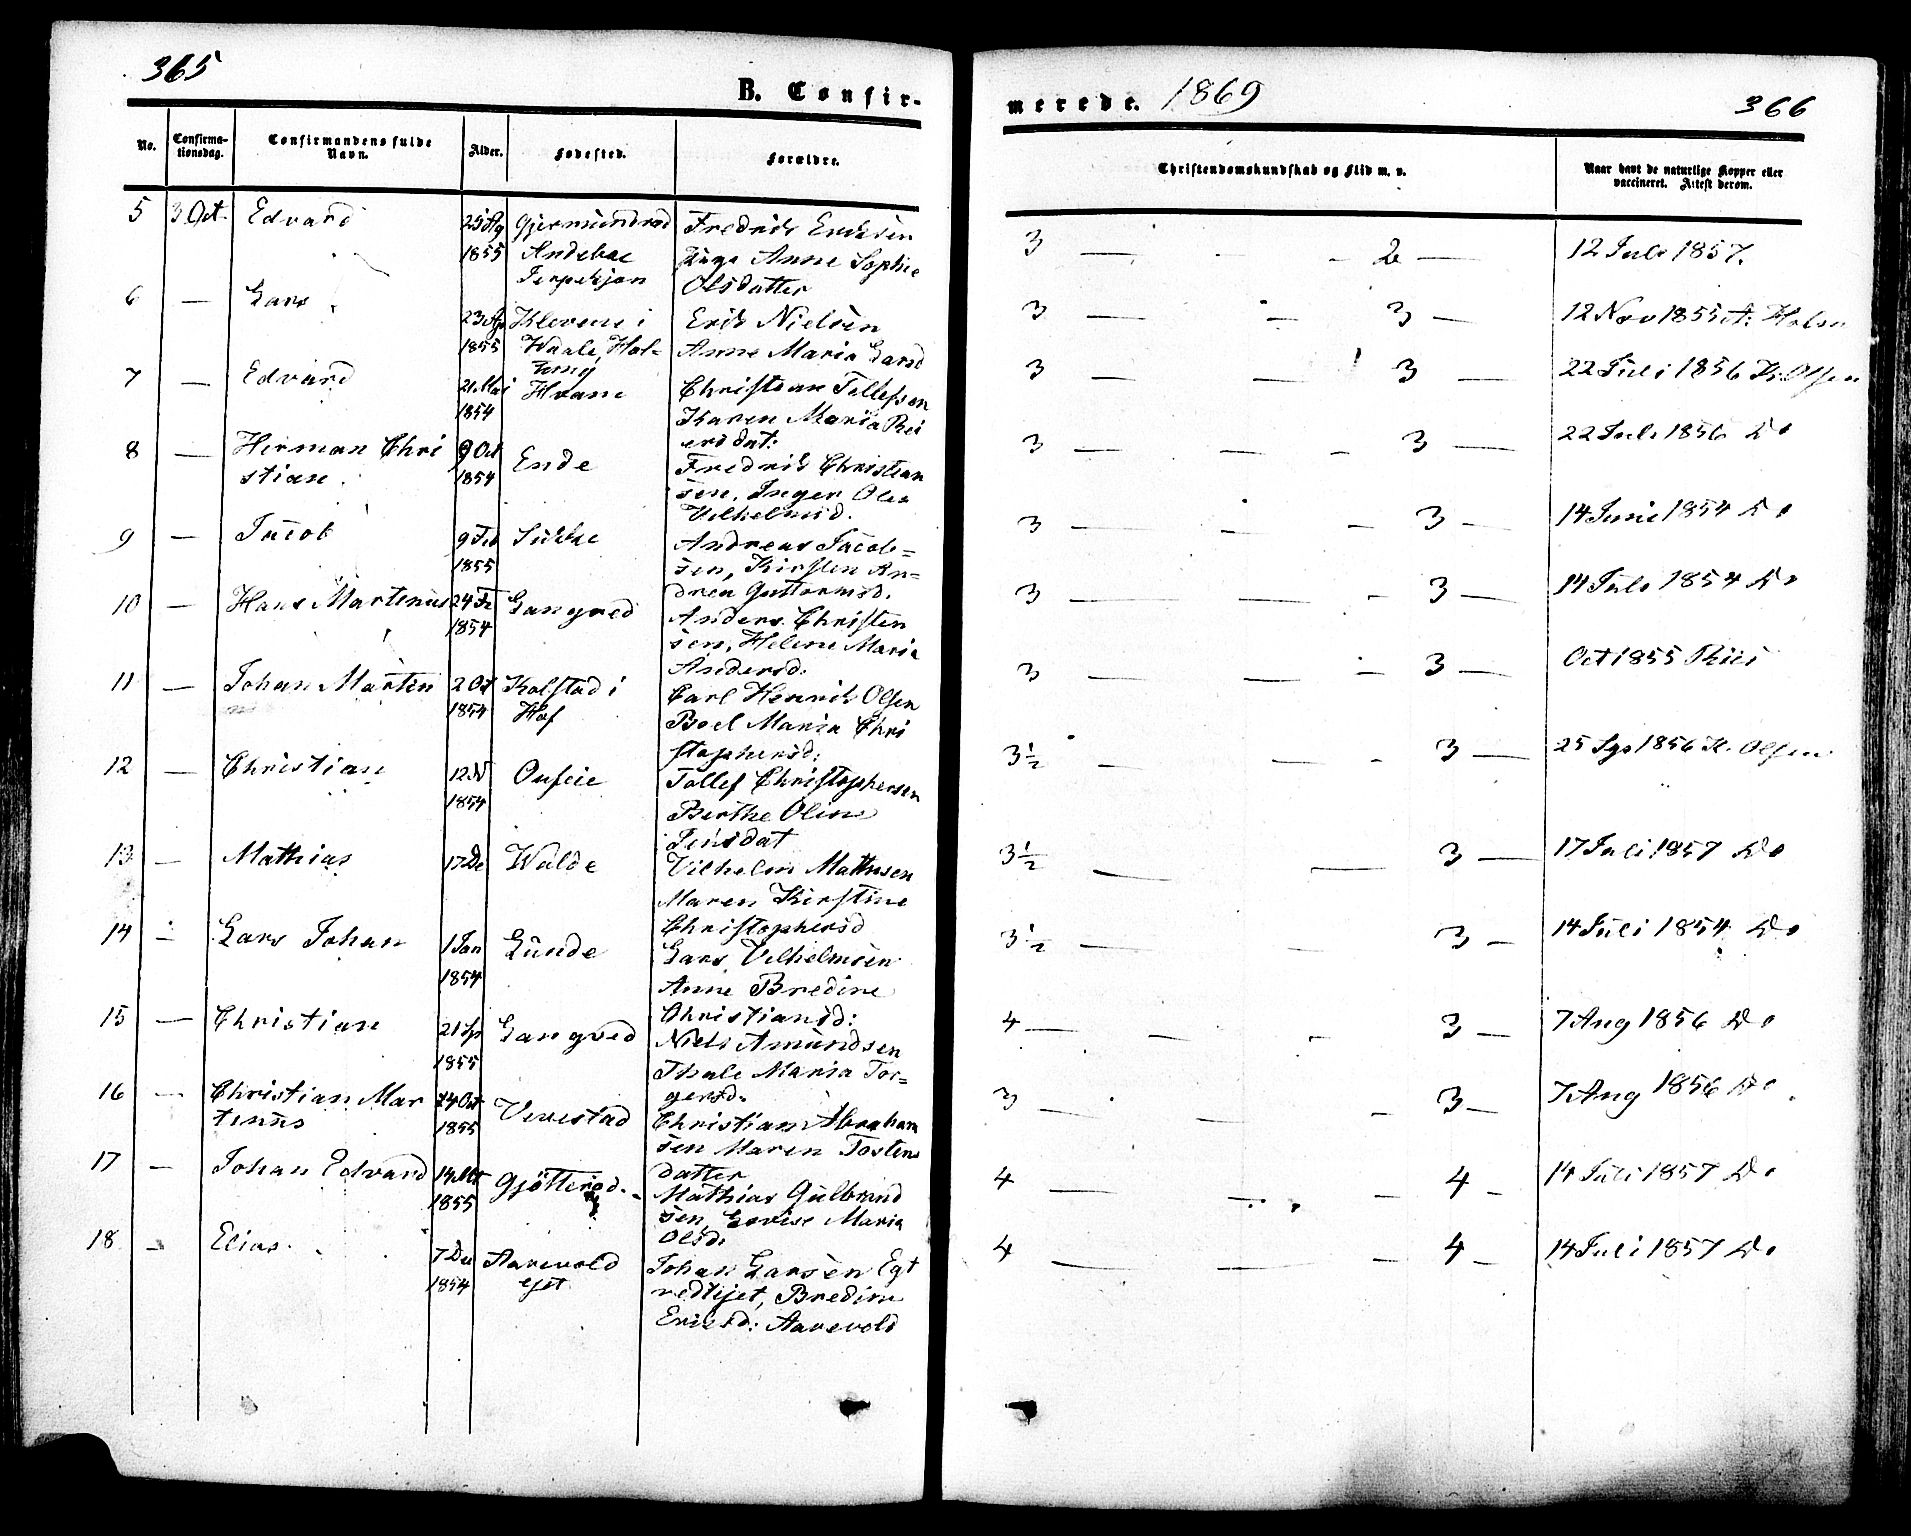 365
B. Confir-
No.
Confirma-
tionsdag.
Confirmandens fulde
Navn.
Alder.
Fødested.
Forældre.
5 3 Oct. Edvard 25 Ag Gjermundrød Fredrik Eriksen
1855 Andebue Anne Sophie
Jerpekjøn Olsdatter
6 — Lars 23 Ag Klevene i Erik Nielsen
1855 Waale, Hal- Anne Maria Larsd
7 — Edvard 21 Mai Hvam Christian Tollefsen
1854 Karen Maria Rei
ersdat:
8 — Herman Chri 9 Oct Ende Fredrik Christian
stian 1854 sen, Inger Olea
Vilhelmsd.
9 — Jacob 9 Feb Andreas Jacob=
1855 sen, Kirsten An=
drea Guttormsd.
10 — Hans Martinus 24 Fe Langved Anders Christen
1854 sen, Helene Maria
Andersd:
11 — Johan Martin 2 Oct Kolstad i Carl Henrik Olsen
1854 Hof Boel Maria Chri
stophersd:
12 — Christian 12 N Oufeie Tollef Christophersen
1854 Berthe Oline
Jensdat
13 — Mathias 17 De Walde Vilhelm Mathisen
Maren Kirstine
Christophersd
14 — Lars Johan 1 Jan Lunde Lars Vilhelmsen
1854 Anne Bredine
Christiansd:
15 — Christian 21 Sp Langved Niels Amundsen
1855 Thale Maria Tor=
gersd.
16 — Christian Mar 24 Oct Verestad Christian Abraham
tinus 1855 sen Maren Tostens
datter
17 — Johan Edvard 14 Mt Gjötterød. Mathias Gulbrand
1855 sen, Lovise Maria
Olsd.
18 — Elias 7 De Aarevold Johan Larsen Egt
1854 ejet vedtejet, Bredine
Eriksd: Aarevold
merede. 1869
366
Christendomskundskab og Flid m. v.
Naar havt de naturlige Kopper eller
vaccineret. Attest derom.
3 — - - 2 — 12 Juli 1857.
3 — - 3 — 12 Nov 1855 A: Holm
3 — — 3 — 22 Juli 1856 K. Olsen
3 — — - 3 — 22 Juli 1856 Do
3 — - - 3 — 14 Juni 1854 Do
3 — — - 3 — 14 Juli 1854 Do
3 — — - 3 — Oct 1855 Thiis
3½ — — - 3 — 25 Sp 1856 K. Olsen
3½ — — 3 — 17 Juli 1857 Do
3½ — — 3 — 14 Juli 1854 Do
4 — - - 3 — 7 Aug 1856 Do
3 — — - 3 — 7 Aug 1856 Do
4 — — - 4 - 14 Juli 1857 Do
4 — — - 4 - 14 Juli 1857 Do